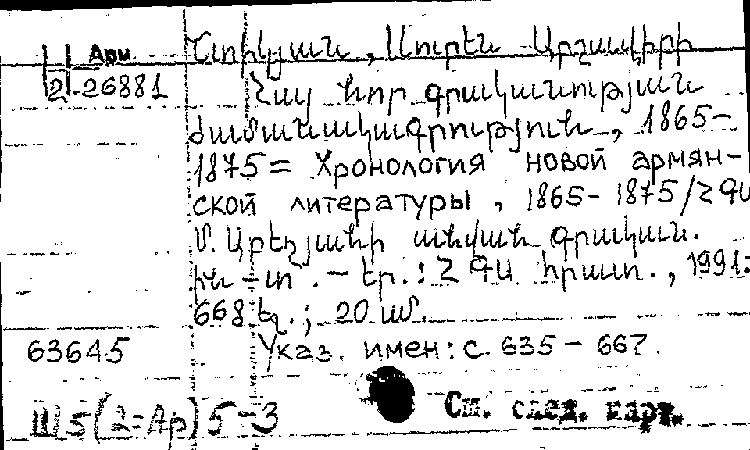 Арм
2-26881
Շտիկյան, Սուրեն Արշավիրի
Հայ նոր գրականության
ժամանակագրություն, 1865–
1875 = Хронология новой армян-
ской литературы, 1865-1875/ՀԳԱ
Մ. Աբեղյանի անվան գրական.
ին-տ. – Եր.: ՀԳԱ հրատ., 1991.
668 էջ.; 20 սմ.
63645
Указ. имен: с. 635–667.
Ш5(2=Ар)5-3
См. след. карт.